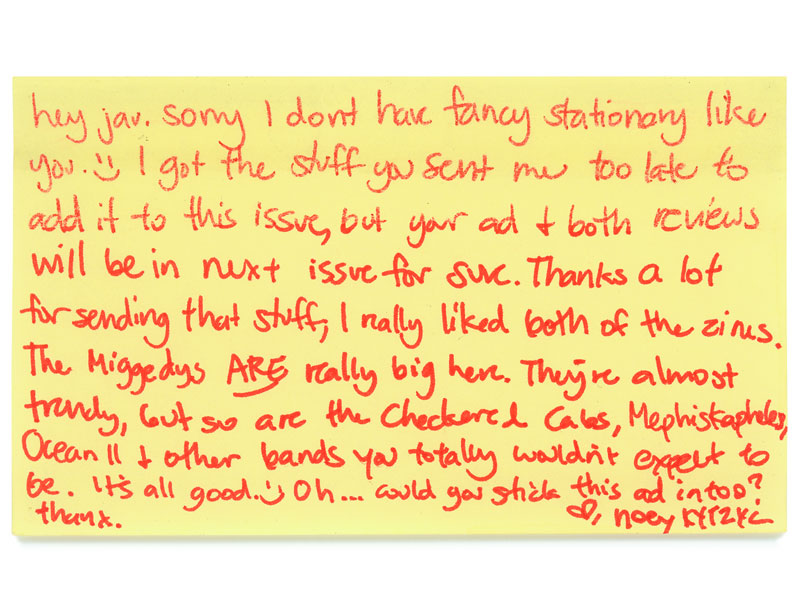 hey jav. sorry I dont have fancy stationary like
you. :) I got the stuff you sent me too late to
add it to this issue, but your ad + both reviews
will be in next issue for sure. Thanks a lot
for sending that stuff, I really liked both of the zines.
The Miggedys ARE really big here. They're almost
trendy, but so are the Checkered Cabs, Mephiskapheles,
Ocean 11 + other bands you totally wouldn't expect to
be. It's all good. :) Oh... could you stick this ad in too?
thanx. ♡, noey